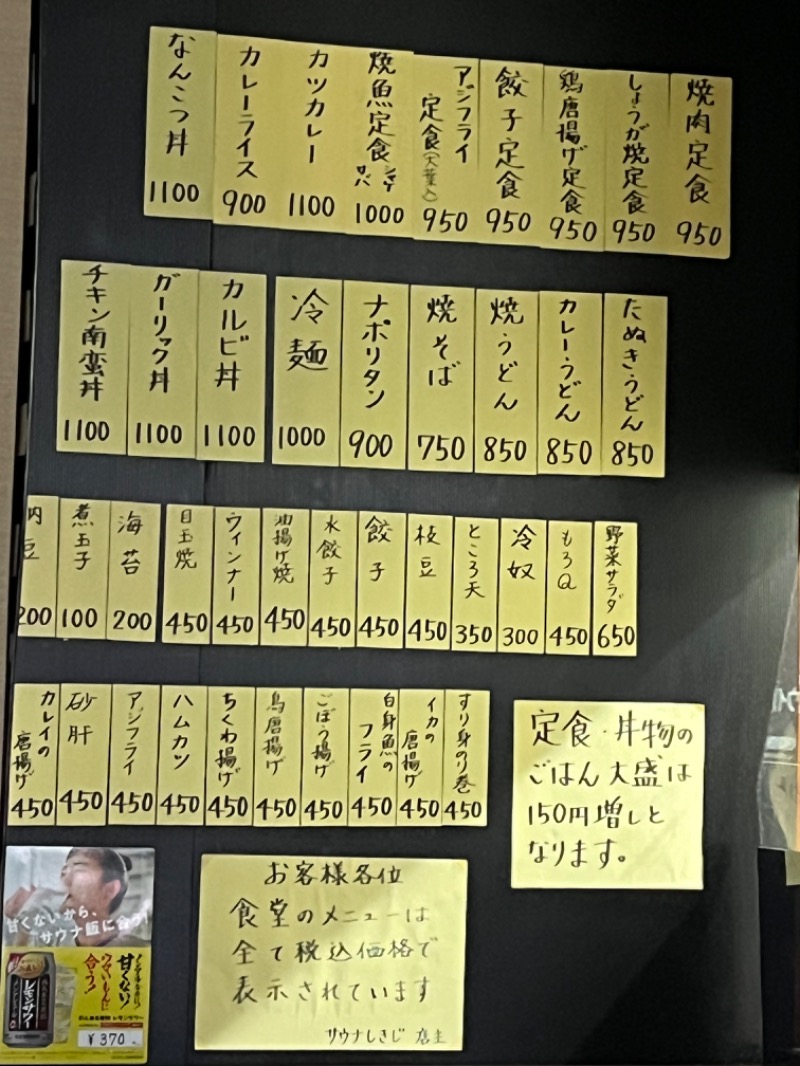 焼肉定食
950
しょうが焼定食
950
鶏唐揚げ定食
950
餃子定食
950
アジフライ
定食(大葉入)
950
焼魚定食 シャケ サバ
1000
カツカレー
1100
カレーライス
900
なんこつ丼
1100
たぬきうどん
850
カレーうどん
850
焼うどん
850
焼そば
750
ナポリタン
900
冷麺
1000
カルビ丼
1100
ガーリック丼
1100
チキン南蛮丼
1100
野菜サラダ
650
もろQ
450
冷奴
300
ところ天
350
枝豆
450
餃子
450
水餃子
450
油揚げ焼
450
ウィンナー
450
目玉焼
450
海苔
200
煮玉子
100
納豆
200
すり身のり巻
450
イカの
唐揚げ
450
白身魚の
フライ
450
ごぼう揚げ
450
鳥唐揚げ
450
ちくわ揚げ
450
ハムカツ
450
アジフライ
450
砂肝
450
カレイの
唐揚げ
450
定食・丼物の
ごはん大盛は
150円増しと
なります。
お客様各位
食堂のメニューは
全て税込価格で
表示されています
サウナしきじ 店主
甘くないから、
サウナ飯に合う!
甘くない!
ウマいもんに
合う!
レモンサワー
¥370.